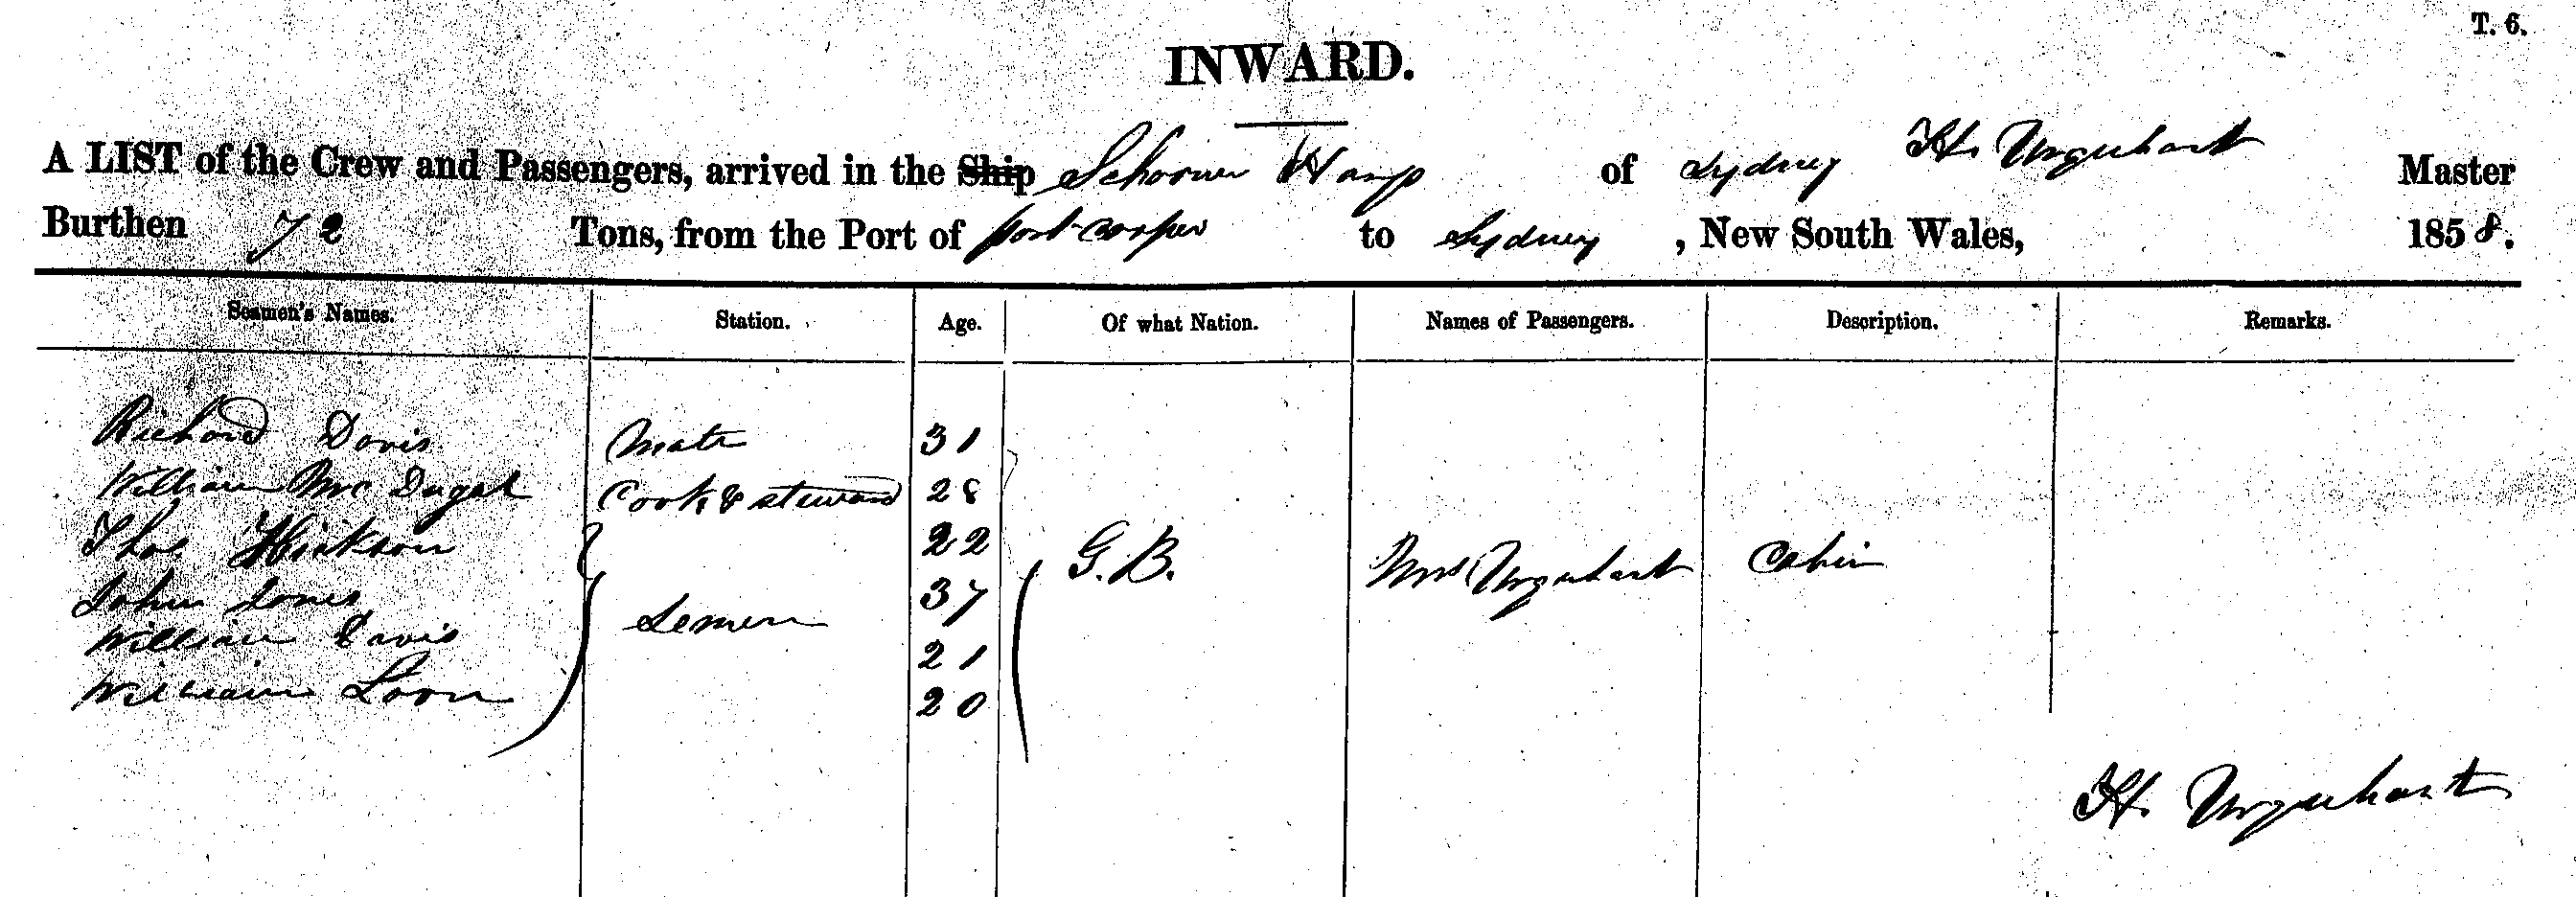 T. 6.
INWARD.
A LIST of the Crew and Passengers, arrived in the Ship Schooner Wasp of Sydney H. Urquhart Master
Burthen 72 Tons, from the Port of port cooper to Sydney , New South Wales, 1858.
Seamen's Names. Station. Age. Of what Nation. Names of Passengers. Description. Remarks.
Richard Davis Mate 31
William Mc Dugal Cook & steward 28
Thos Hickson 22 G. B. Mrs Urquhart Cabin
John Jones 37
Semen
William Davis 21
William Loon 20
H. Urquhart